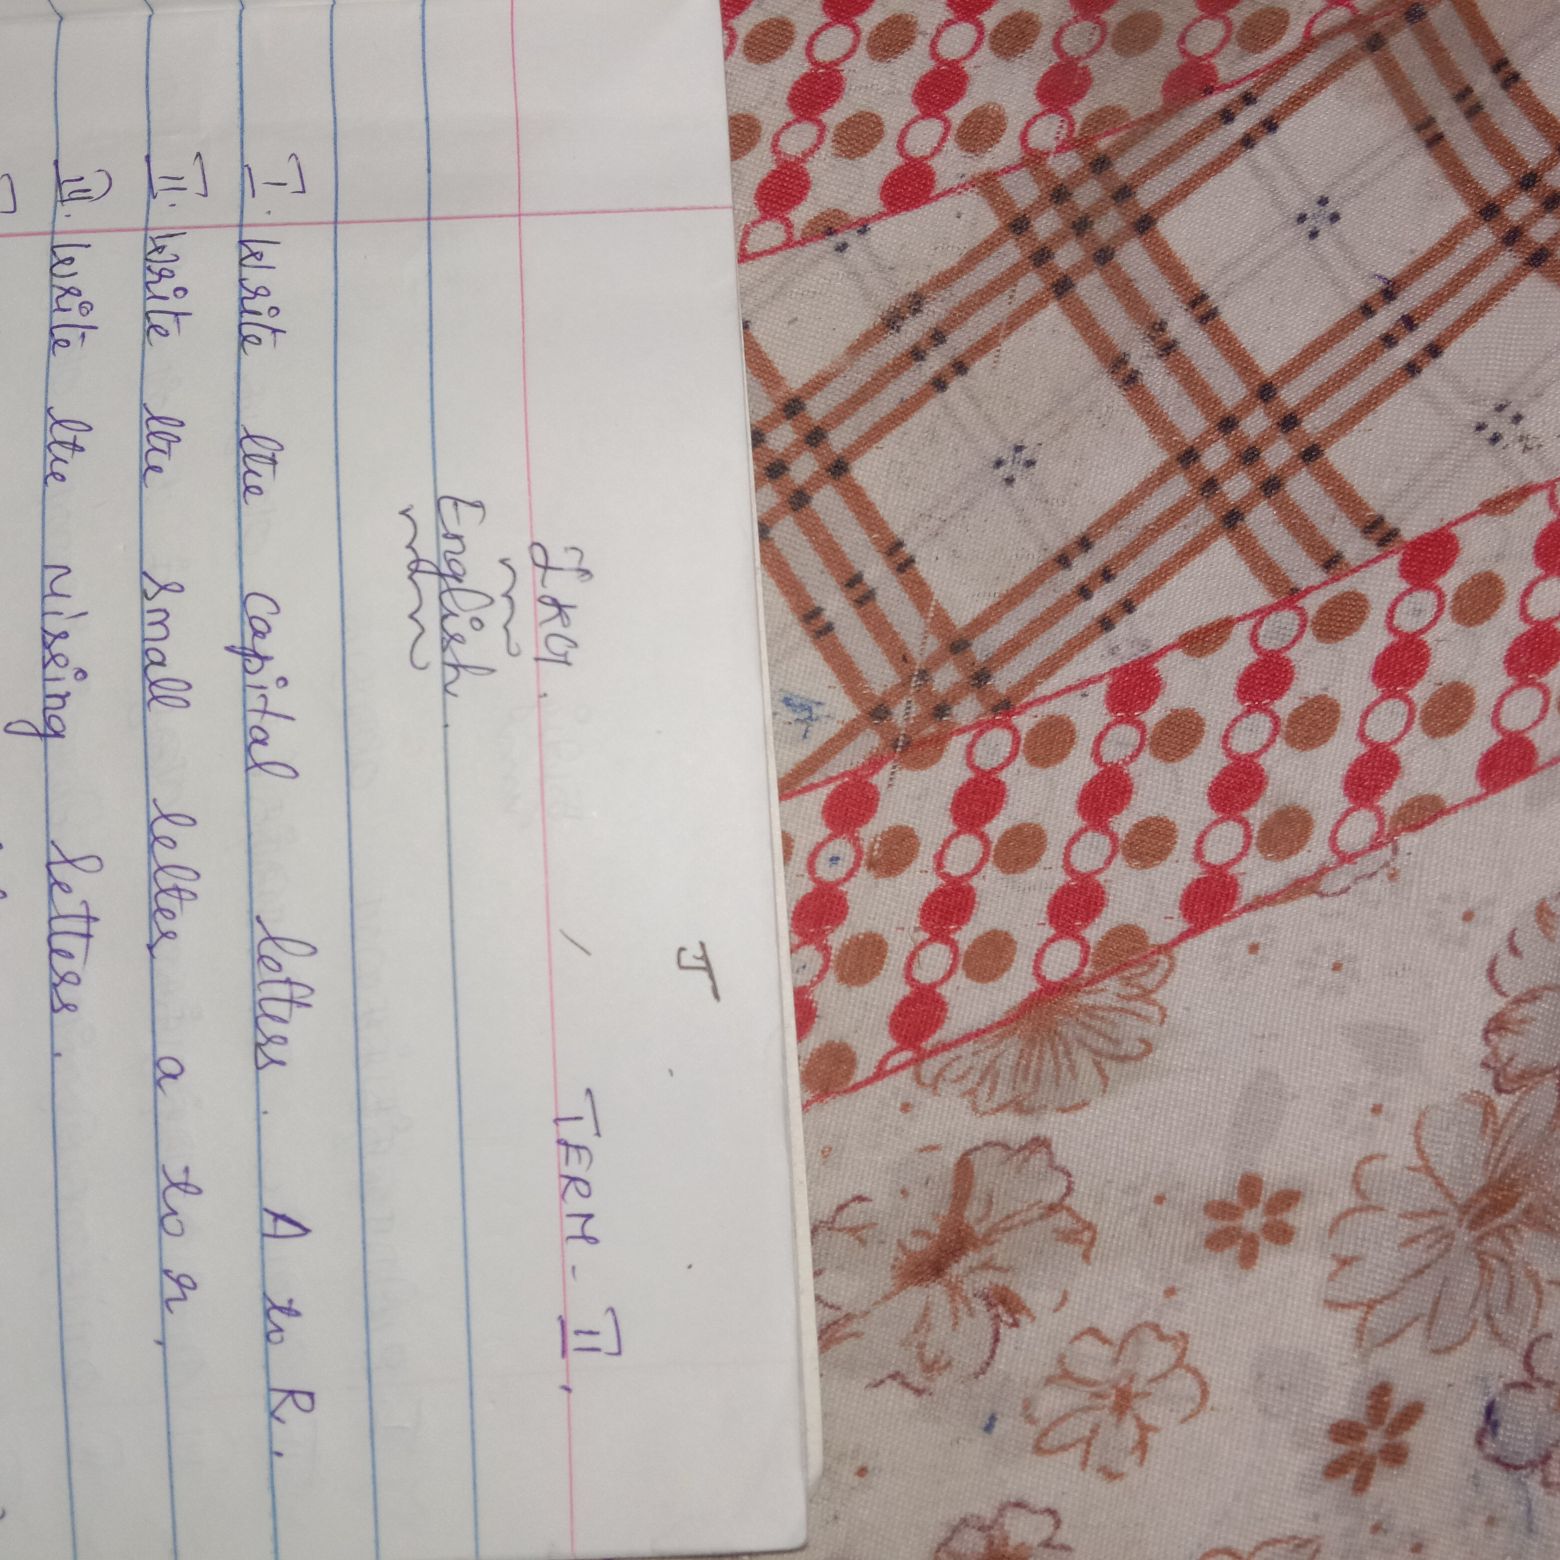 LKG. / TERM-II.
English.
I. Write the capital letters. A to R.
II. Write the small letters a to r.
III. Write the missing letters.